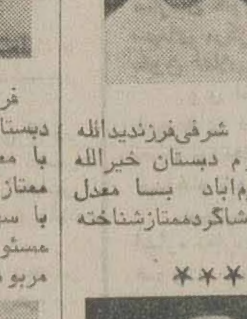 شرفی‌فرزندیدالله
م دبستان خیرالله
م‌اباد بسا معدل
شاگردممتازشناخته
★★★
فر
دبستا
با مع
ممتاز
با سی
مسئو
مربو